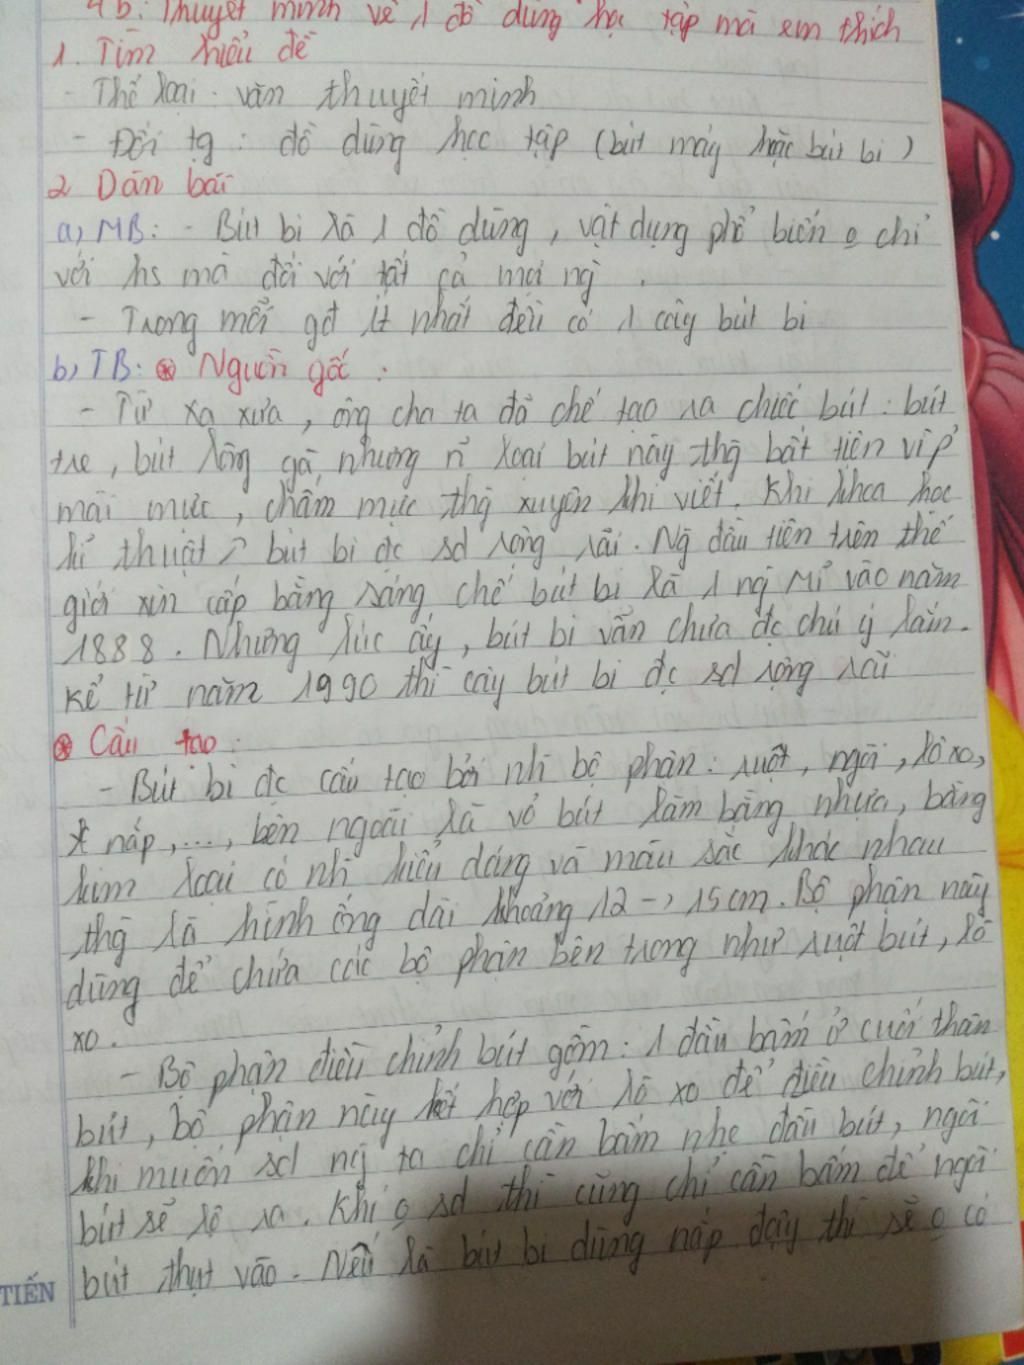 4b: Thuyết minh về 1 đồ dùng học tập mà em thích
1. Tìm hiểu đề
- Thể loại: văn thuyết minh
- Đối tg: đồ dùng học tập (bút máy hoặc bút bi)
2 Dàn bài
a, MB: - Bút bi là 1 đồ dùng, vật dụng phổ biến o chỉ
với hs mà đối với tất cả mọi ng
- Trong mỗi gđ ít nhất đều có 1 cây bút bi
b, TB: * Nguồn gốc:
- Từ xa xưa, ông cha ta đã chế tạo ra chiếc bút: bút
tre, bút lông gà nhưng n~ loại bút này thg bất tiện vì p'
mài mực, chấm mực thg xuyên khi viết. Khi khoa học
kĩ thuật ↗ bút bi đc sd rộng rãi. Ng đầu tiên trên thế
giới xin cấp bằng sáng chế bút bi là 1 ng Mĩ vào năm
1888. Nhưng lúc ấy, bút bi vẫn chưa đc chú ý lắm.
Kể từ năm 1990 thì cây bút bi đc sd rộng rãi
* Cấu tạo:
- Bút bi đc cấu tạo bởi nh` bộ phận: ruột, ngòi, lò xo,
nắp,..., bên ngoài là vỏ bút làm bằng nhựa, bằng
kim loại có nh` kiểu dáng và màu sắc khác nhau
thg là hình ống dài khoảng 12 -> 15cm. Bộ phận này
dùng để chứa các bộ phận bên trong như ruột bút, lò
xo.
- Bộ phận điều chỉnh bút gồm: 1 đầu bấm ở cuối thân
bút, bộ phận này kết hợp với lò xo để điều chỉnh bút,
khi muốn sd ng ta chỉ cần bấm nhẹ đầu bút, ngòi
bút sẽ lộ ra. Khi o sd thì cũng chỉ cần bấm để ngòi
bút thụt vào. Nếu là bút bi dùng nắp đậy thì sẽ o có
TIẾN